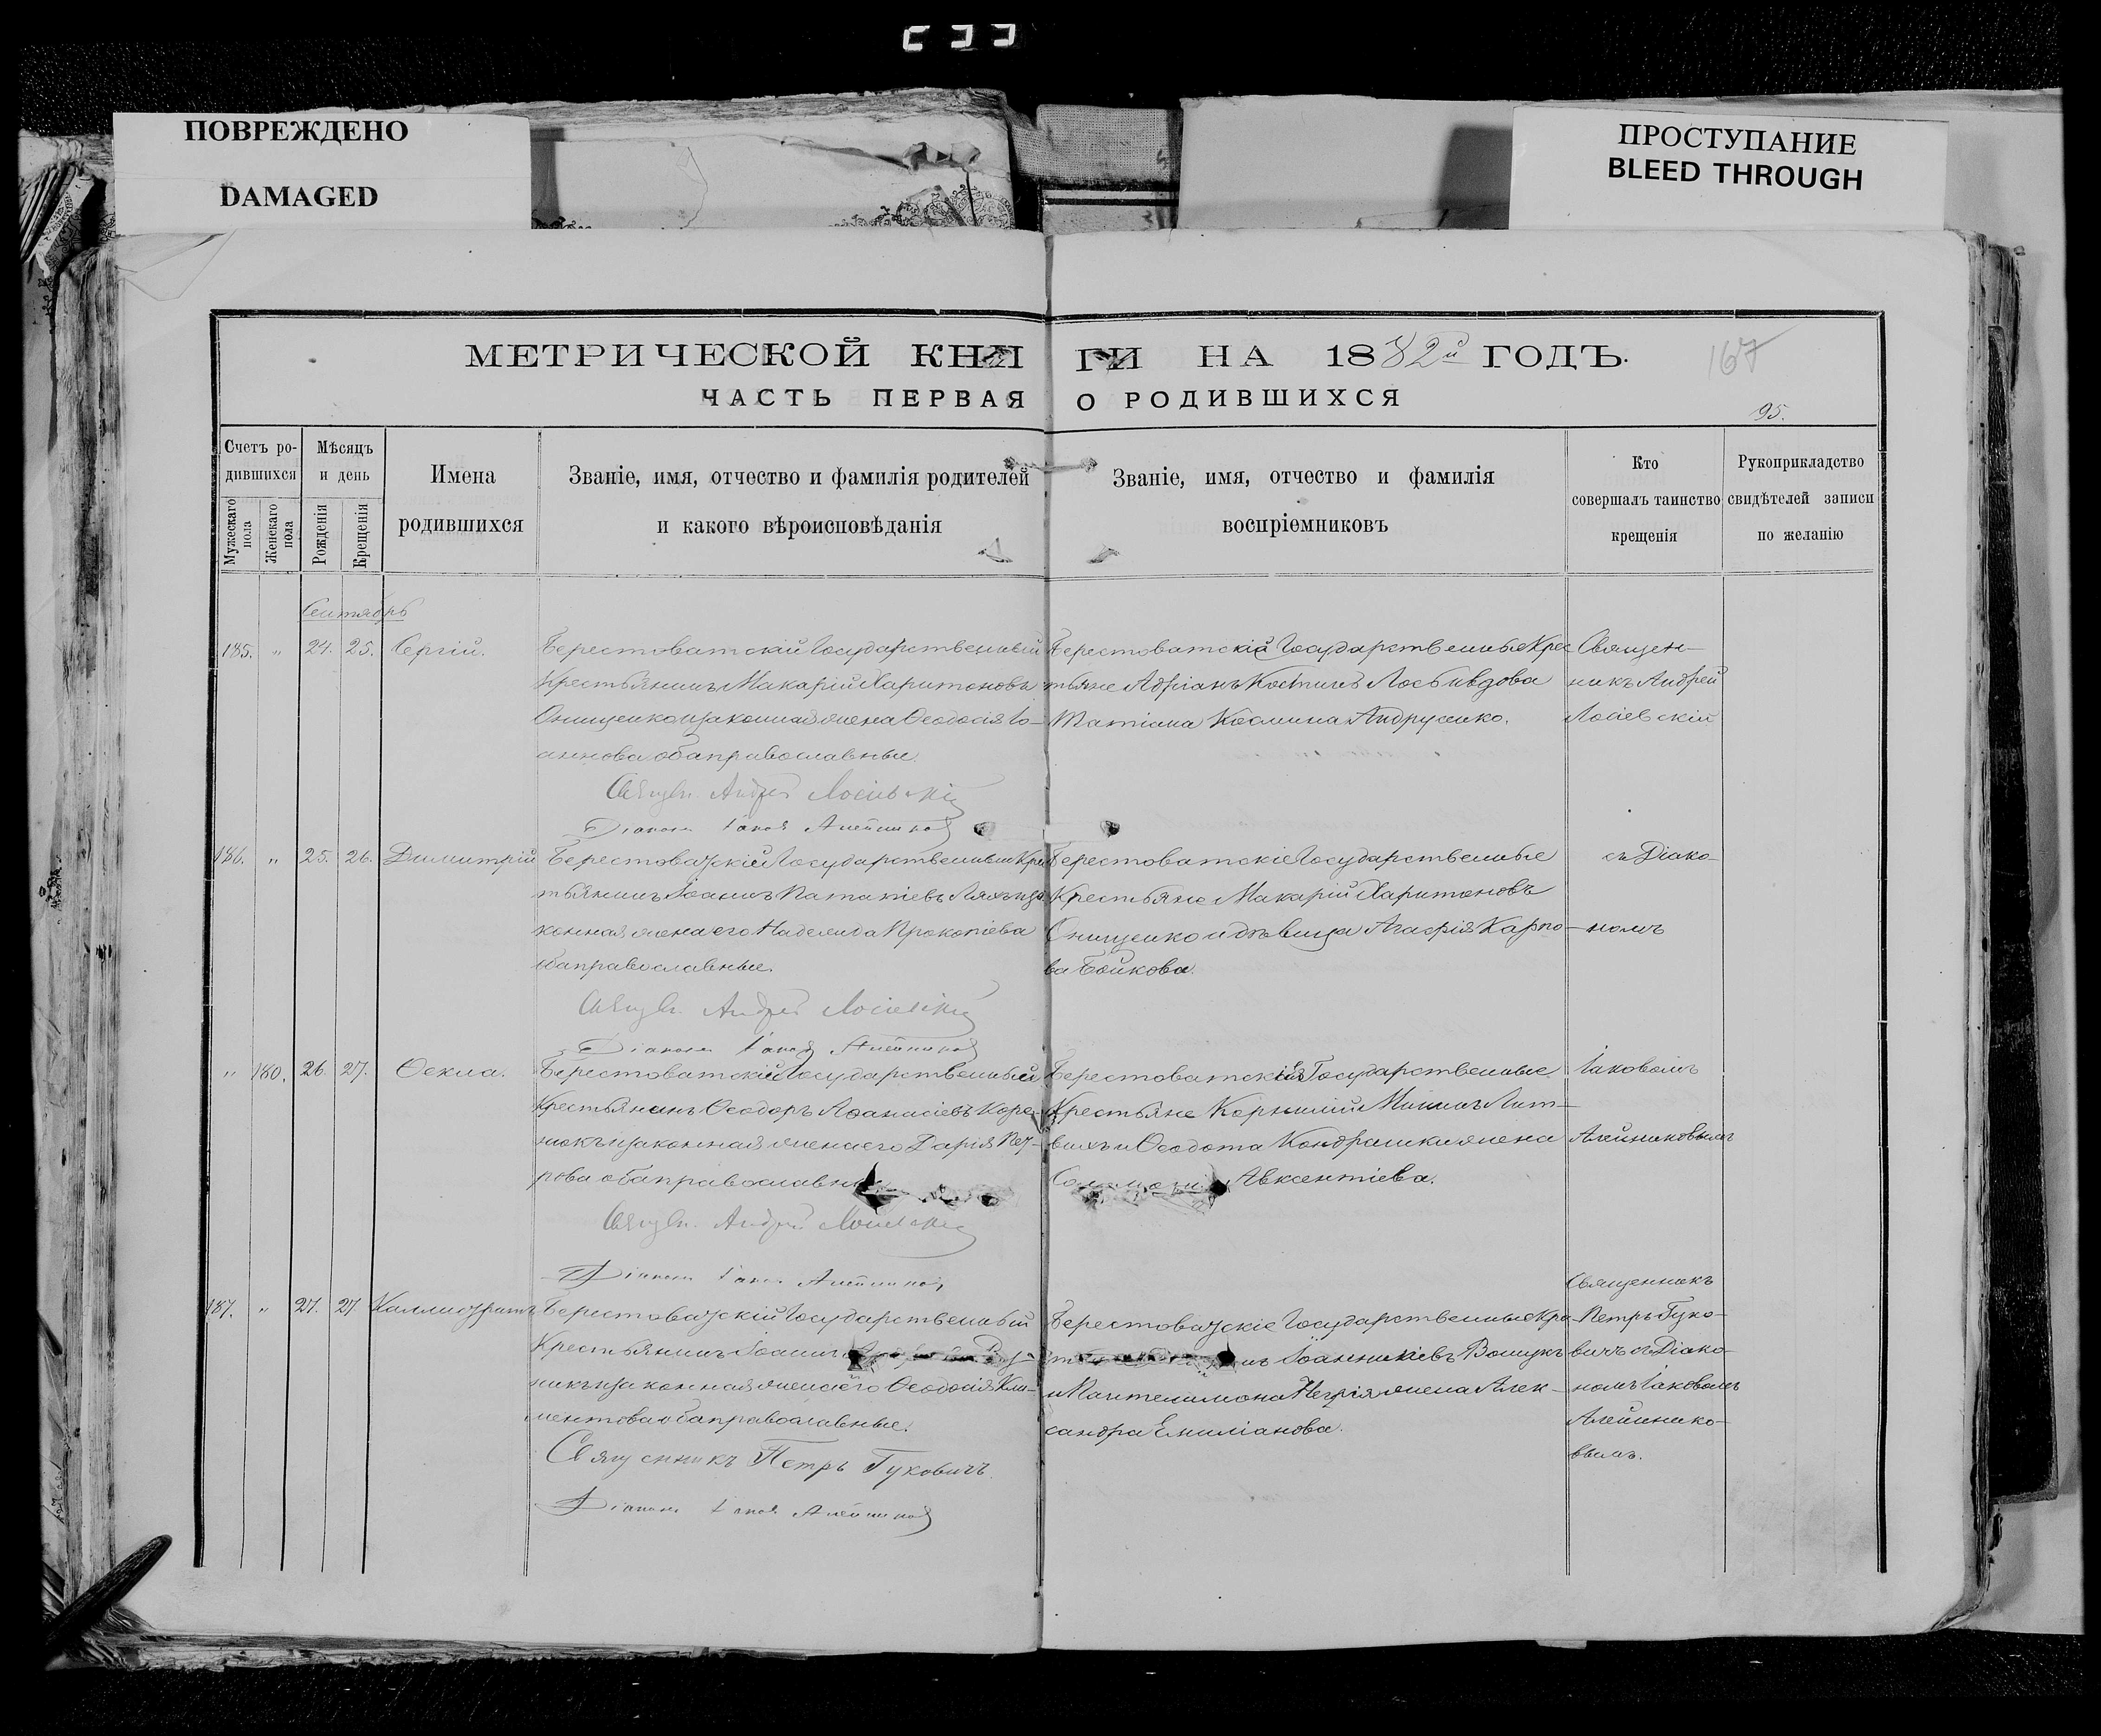 ПОВРЕЖДЕНО
DAMAGED
ПРОСТУПАНИЕ
BLEED THROUGH
МЕТРИЧЕСКОЙ КНИГИ НА 1882й ГОДЪ.
167
ЧАСТЬ ПЕРВАЯ О РОДИВШИХСЯ
95.
Счетъ ро-
дившихся
Мужескаго пола
Женскаго пола
Мѣсяцъ
и день
Рожденія
Крещенія
Имена
родившихся
Званіе, имя, отчество и фамилія родителей
и какого вѣроисповѣданія
Званіе, имя, отчество и фамилія
воспріемниковъ
Кто
совершалъ таинство
крещенія
Рукоприкладство
свидѣтелей записи
по желанію
Сентябрь
185. „ 24. 25. Сергій.
Берестоватскій Государственный
Крестьянинъ Макарій Харитоновъ
Онищенко и законная жена Ѳеодосія Іо-
аннова оба православные.
Священ. Андрей Лосіевскій
Діаконъ Іаковъ Алейниковъ
Берестоватскіе Государственные Крес
тьяне Адріанъ
Татіана Космина Андрусенко.
Священ-
никъ Андрей
Лосіевскій
186. „ 25. 26. Димитрій
Берестоватскій Государственный Крес
тьянинъ Іоаннъ Ляхъ и за
конная жена его Надежда Прокопіева
оба православные.
Священ. Андрей Лосіевскій
Діаконъ Іаковъ Алейниковъ
Берестоватскіе Государственные
Крестьяне Макарій Харитоновъ
Онищенко и дѣвица Агафія Карпо-
ва Бойкова.
съ Діако-
номъ
„ 180. 26. 27. Ѳекла.
Берестоватскій Государственный
Крестьянинъ Ѳеодоръ Аѳанасіевъ Коре-
нюкъ и законная жена его Дарія Пет-
рова оба православные
Священ. Андрей Лосіевскій
Діаконъ Іаковъ Алейниковъ
Берестоватскіе Государственные
Крестьяне Корнилій Мининъ Лит-
винъ и Ѳеодота Кондрашки жена
Авксентіева.
Іаковомъ
Алейниковымъ
187. „ 27. 27. Каллистратъ
Берестоватскій Государственный
Крестьянинъ Іоаннъ
никъ и законная жена его Ѳеодосія Кли-
ментова оба православные.
Священникъ Петръ Гуковичъ
Діаконъ Іаковъ Алейниковъ
Берестоватскіе Государственные Кре-
Іоанникіевъ Вощукъ
и Пантелимона Негрія жена Алек-
сандра Емиліанова.
Священникъ
Петръ Гуко-
вичъ съ Діако-
номъ Іаковомъ
Алейнико-
вымъ.